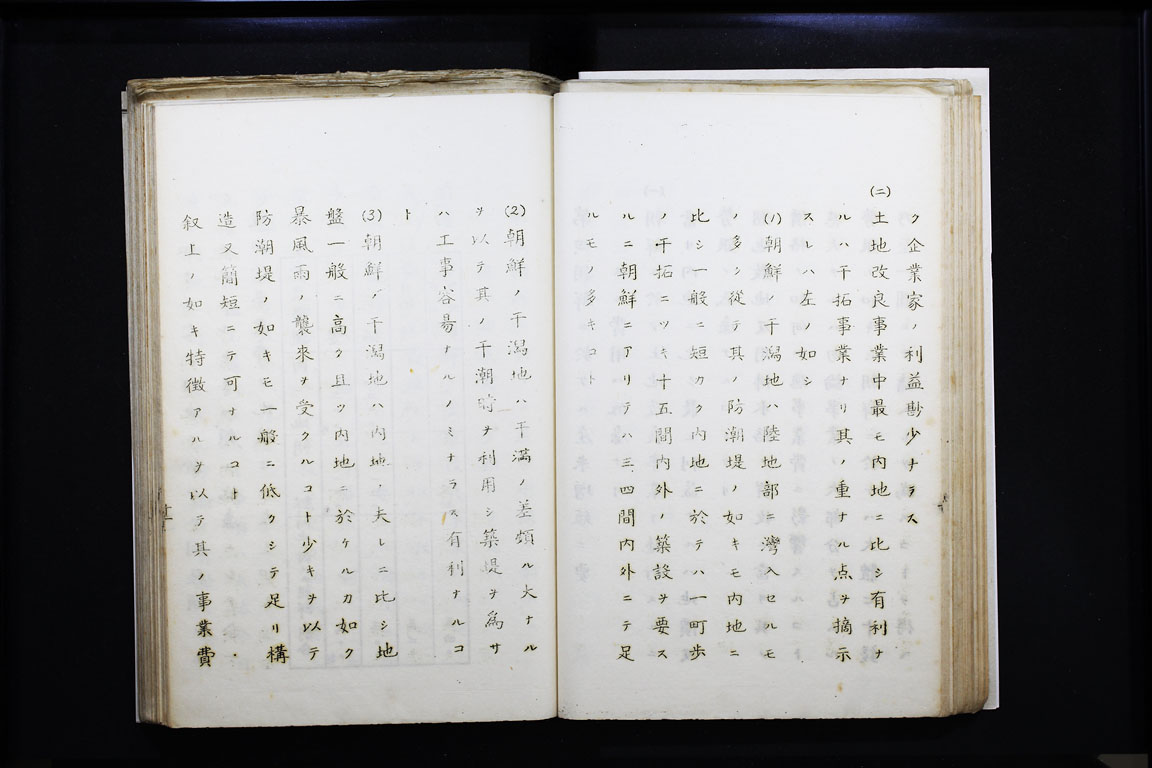 ク企業家ノ利益尠少ナラス
(二)土地改良事業中最モ内地ニ比シ有利ナ
ルハ干拓事業ナリ其ノ重ナル点ヲ摘示
スレハ左ノ如シ
(1)朝鮮ノ干潟地ハ陸地部ニ灣入セルモ
ノ多ク從テ其ノ防潮堤ノ如キモ内地ニ
比シ一般ニ短カク内地ニ於テハ一町歩
ノ干拓ニツキ十五間内外ノ築設ヲ要ス
ルニ朝鮮ニアリテハ三四間内外ニテ足
ルモノ多キコト
(2)朝鮮ノ干潟地ハ干満ノ差頗ル大ナル
ヲ以テ其ノ干潮時ヲ利用シ築堤ヲ為サ
ハ工事容易ナルノミナラス有利ナルコ
ト
(3)朝鮮ノ干潟地ハ内地ノ夫レニ比シ地
盤一般ニ高ク且ツ内地ニ於ケルカ如ク
暴風雨ノ襲来ヲ受クルコト少キヲ以テ
防潮堤ノ如キモ一般ニ低クシテ足リ構
造又簡短ニテ可ナルコト
叙上ノ如キ特徴アルヲ以テ其ノ事業費